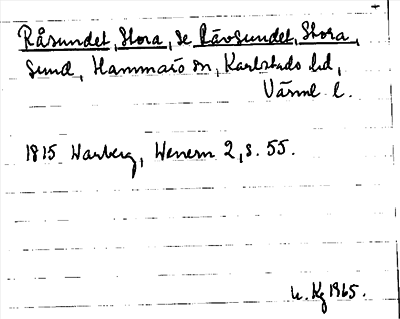 Råsundet, Stora, se Rävsundet, Stora,
sund, Hammarö sn, Karlstads hd,
Värml l.
1815 Warberg, Wenern 2, s. 55.
u. Kg 1965.